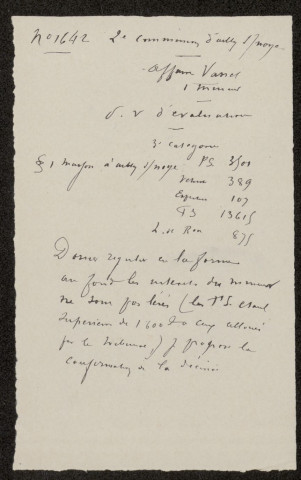 No 1642 2e commission d'ailly s/noye
Affaire Vasset
1 mineur
d. v d'évaluation
3e catégorie
§ 1 maison à ailly s/noye P.S. 3501
389
107
TS 13615
875
Dossier régulier en la forme
au fond les intérêts du mineur
ne sont pas lésés (les P.S. étant
supérieurs de 1600 à ceux alloués
par le Tribunal) je propose la
confirmation de la décision